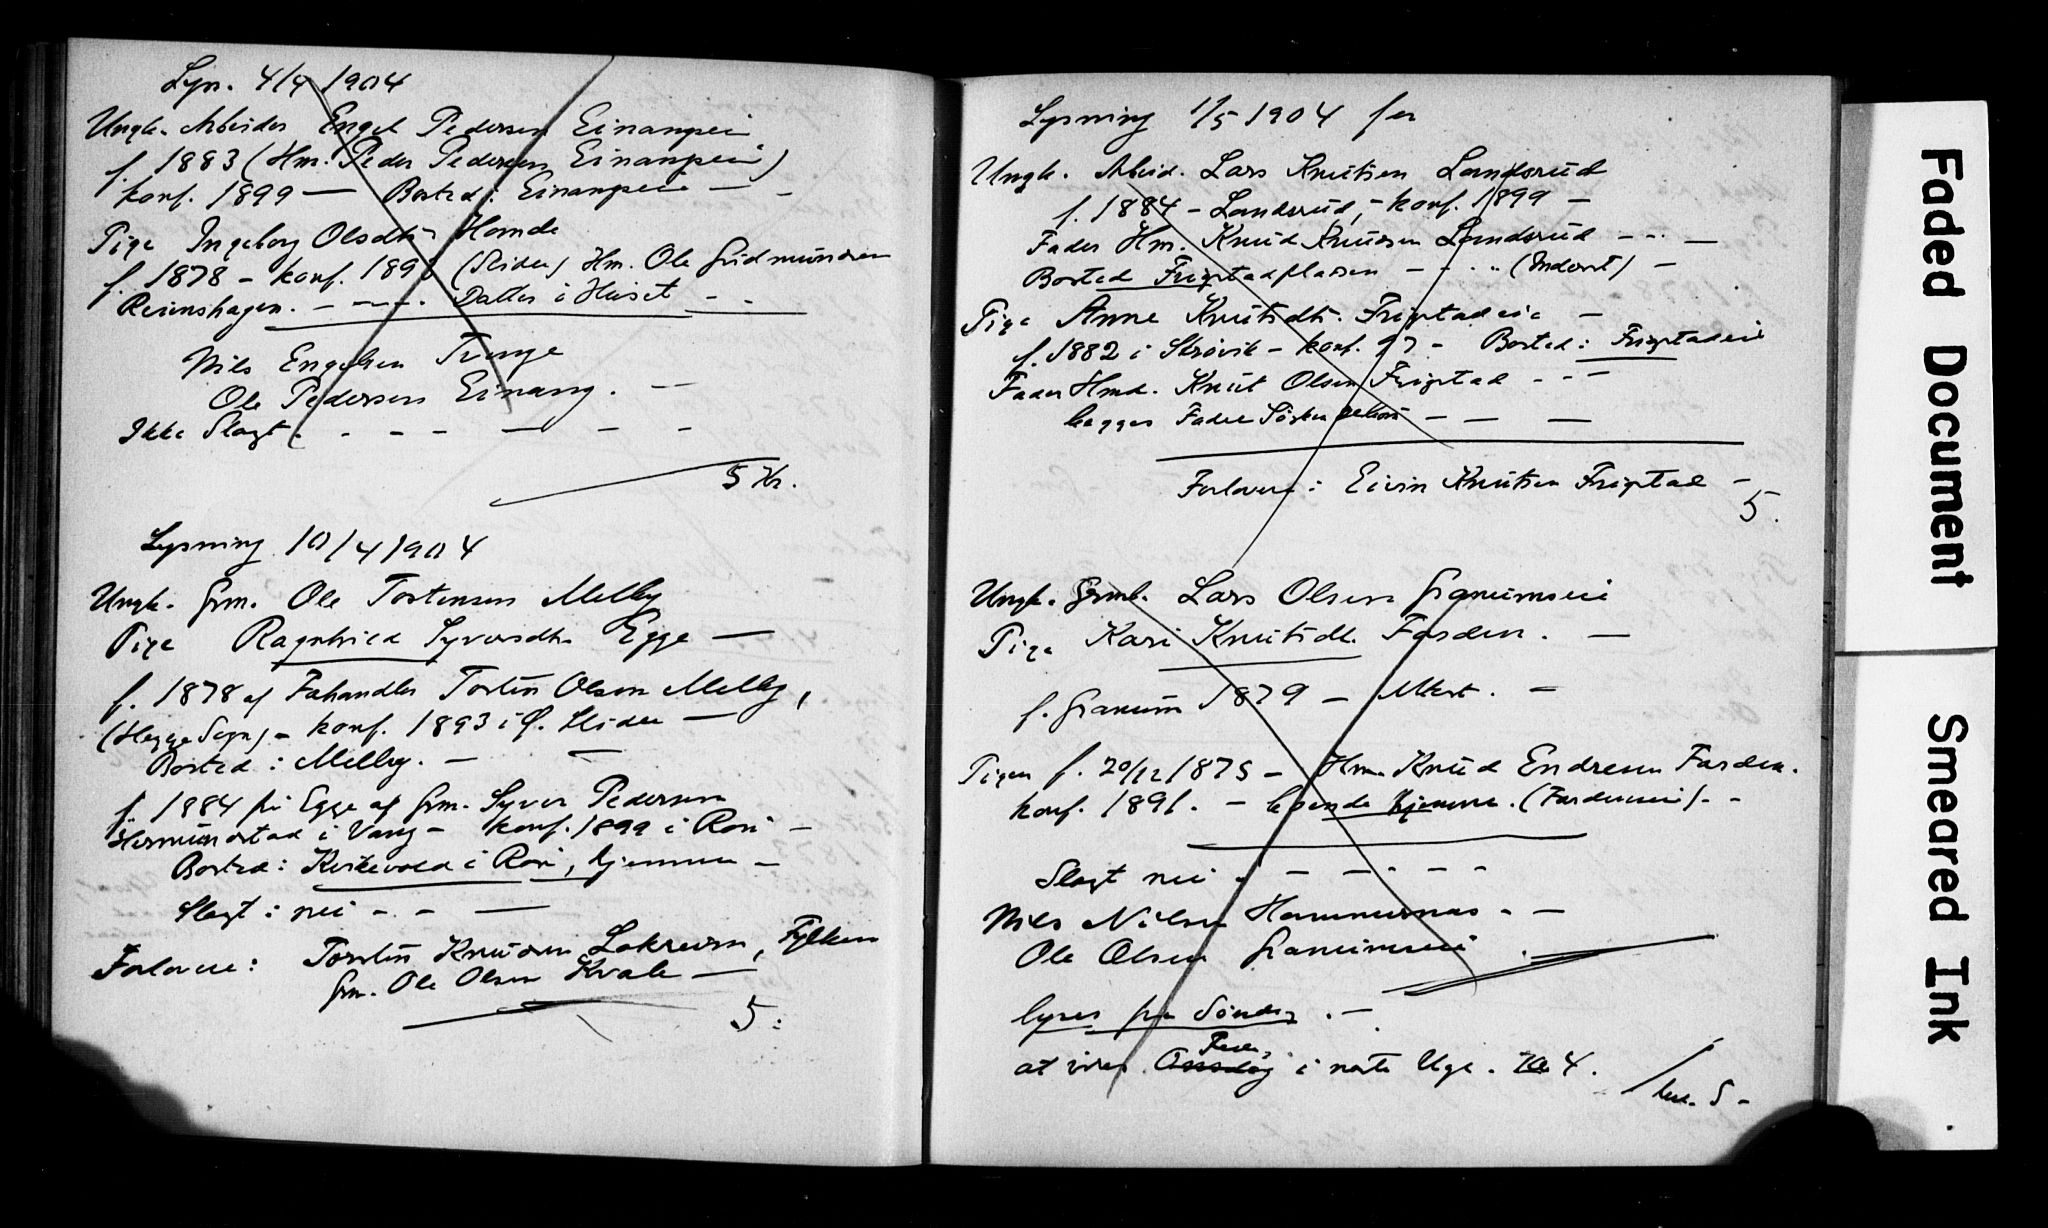 Lysn. 4/4 1904
Ungk. Arbeider Engel Pedersen Einangseie
f. 1883 (Hm. Peder Pedersen Einangseie)
konf. 1899 — Bosted: Einangseie — -
Pige Ingeborg Olsdtr Homde
f. 1878 - konf. 189 (Slidre) Hm. Ole Gudmundsen
Reienshagen. - - - - Datter i Huset - -
Nils Engelsen Tvenge
Ole Pedersen Einang. - -
Ikke Slagt. - - - — - -
5 Kr.
Lysning 10/4 1904
Ungk. Grm. Ole Torstensen Melby
Pige Ragnhild Syversdtr. Egge —
f. 1878 af Fehandler Torsten Olsen Melby,
(Hegge Sogn) - konf. 1893 i Ø. Slidre —
Bosted: Melby. - -
f. 1884 på Egge af Grm. Syver Pedersen
Hermundstad i Vang - konf. 1899 i Ron -
Bosted: Kirkevold i Ron, hjemme -
Slagt: nei - - —
Forlovere: Torstin Knudsen Lokreim, Fylken
Grm. Ole Olsen Kvale —
5:
Lysning 1/5 1904 for
Ungk. Arbeid. Lars Knutsen Landsrud
f. 1884 - Landsrud, - konf. 1899 -
Fader Hm. Knud Knudsen Landsrud - - -
Bosted Frigstadpladsen - - - (Inderst) -
Pige Anne Knutsdtr. Frigstadeie -
f. 1882 i Skrøvik - konf. 97 - Bosted: Frigstadeie
Fader Hmd. Knut Olsen Frigstad - - -
begges Fadre Søskendebørn - — —
Forlovere: Eivin Knutsen Frigstad -
5.
Ungk. Grmd. Lars Olsen Granumseie
Pige Kari Knutsdt. Fosden. —
f. Granum 1879 - Ulnes. -
Pigen f. 20/12 1875 - Hm. Knud Endresen Farden.
konf. 1891. - boende hjemme. (Fardeneie). -
Slagt nei . - - - -
Nils Nilsen Hammernas - -
Ole Olsen Granumseie
lyses fra Søndag . -
Fredag
at vies Onsdag i næste Uge. Kl 4.
5 -